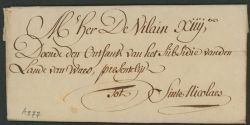 Mher De Vilain XIIII
Doende den Ontfank van het subsidie vanden
Lande van Waes, presentelijk
Tot Sinte Nicolaes
A377